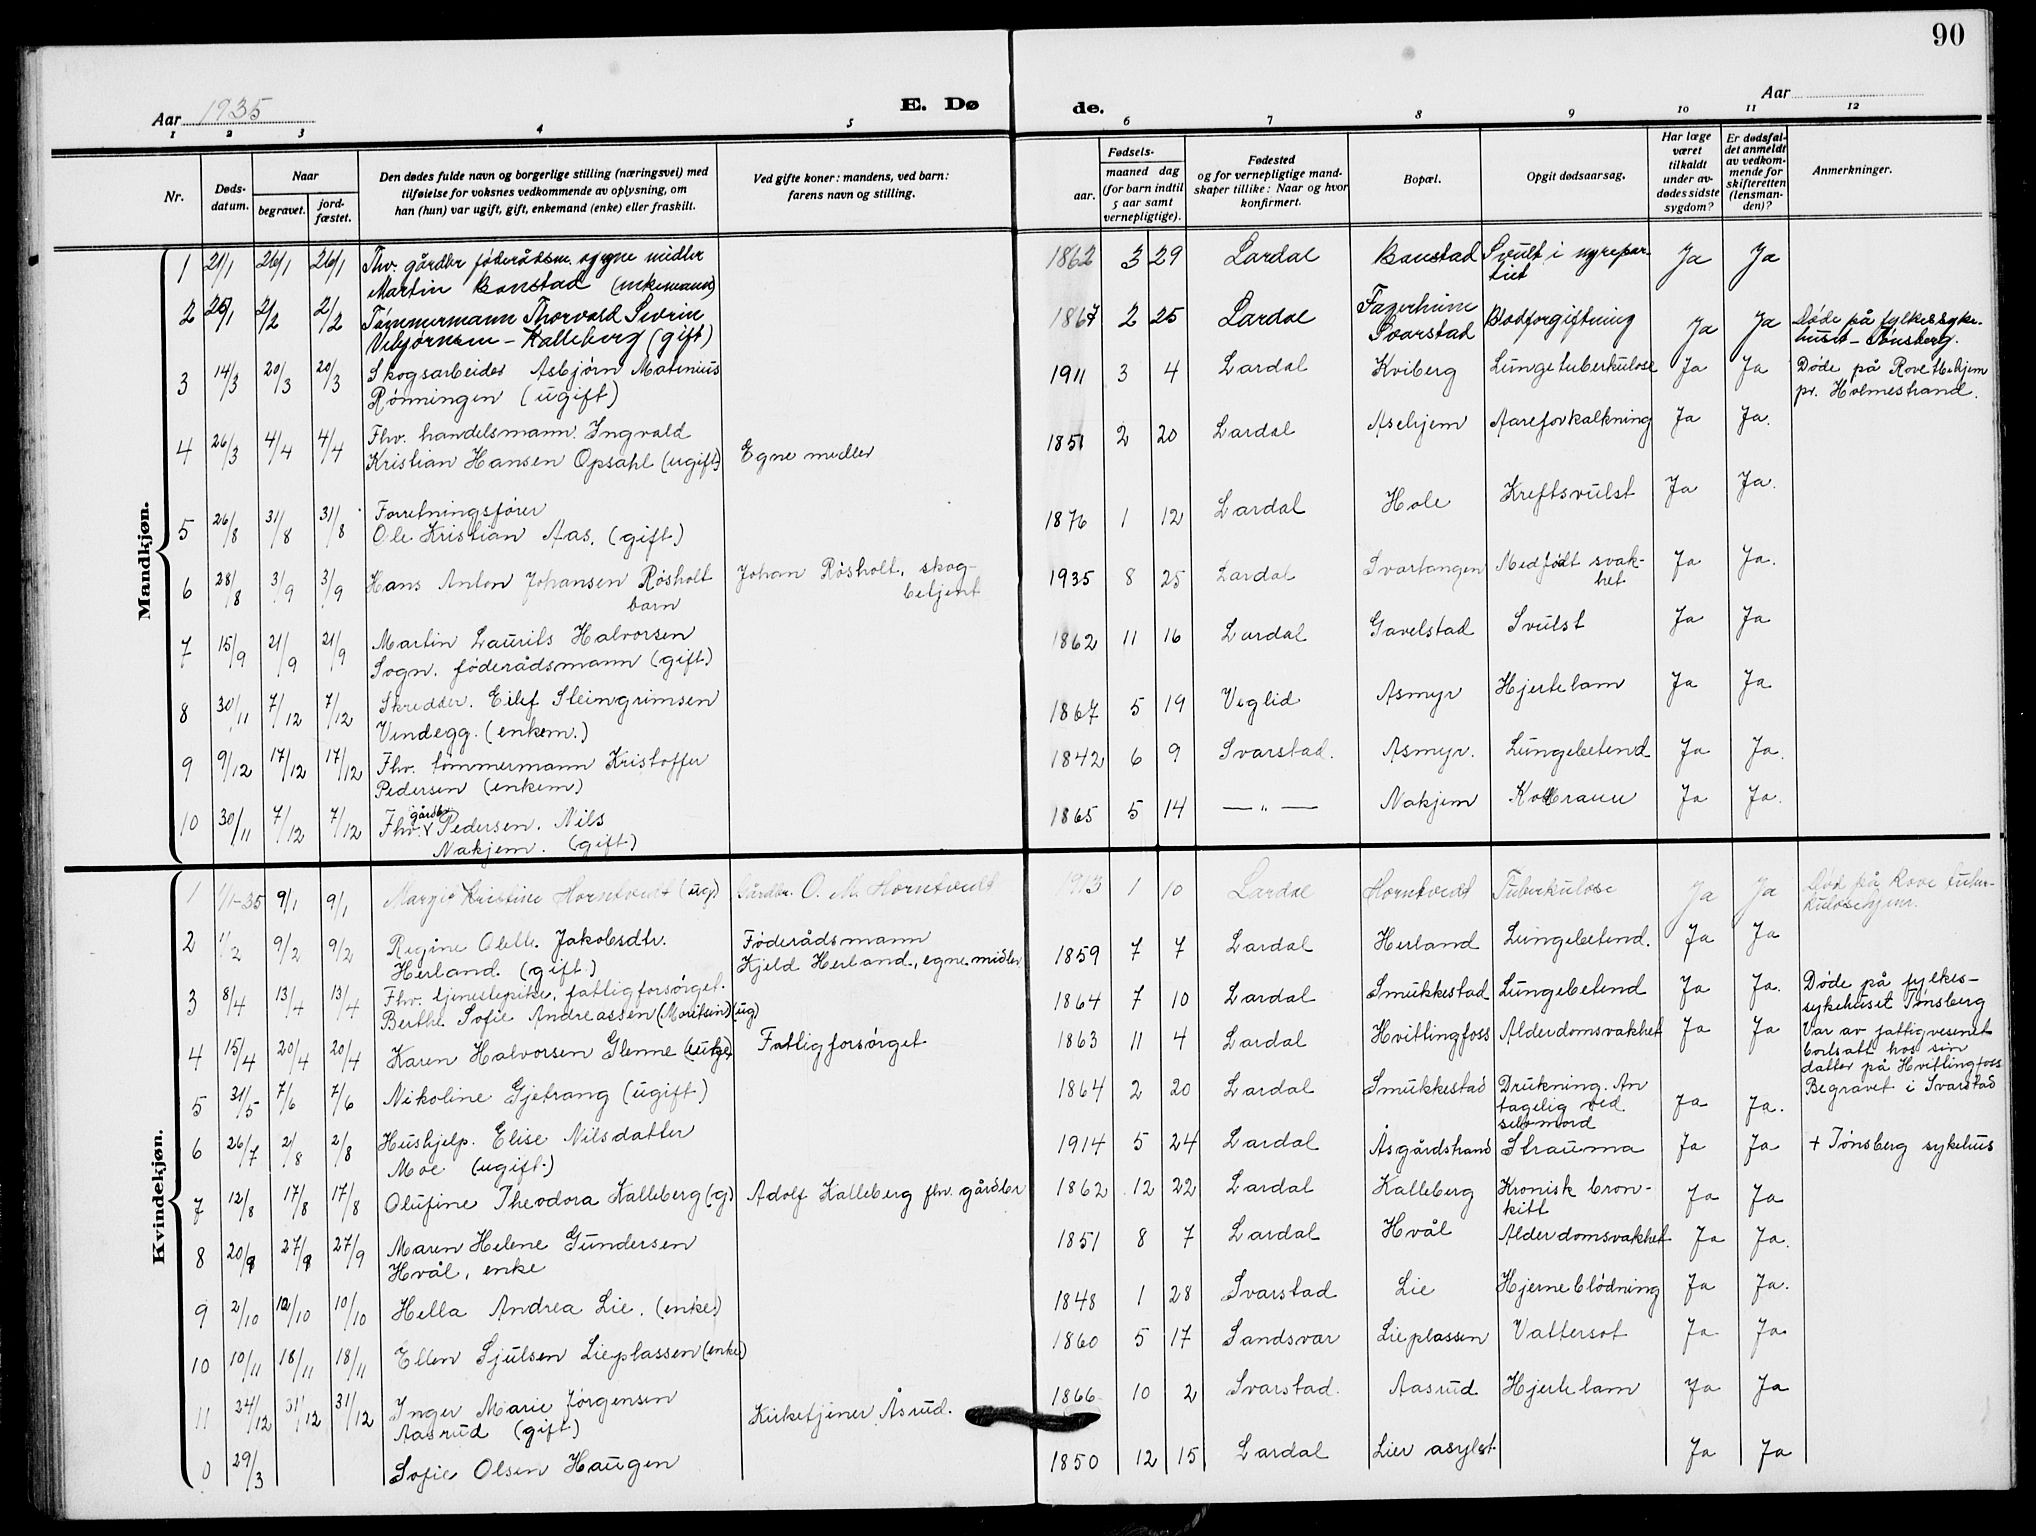 90
Aar 1935
E. Dø de.
Aar
1 2 3 4 5 6 7 8 9 10 11 12
Nr.
Døds-
datum.
Naar
begravet.
jord-
fæstet.
Den dødes fulde navn og borgerlige stilling (næringsvei) med
tilføielse for voksnes vedkommende av oplysning, om
han (hun) var ugift, gift, enkemand (enke) eller fraskilt.
Ved gifte koner: mandens, ved barn:
farens navn og stilling.
Fødsels-
aar.
maaned dag
(for barn indtil
5 aar samt
vernepligtige).
Fødested
og for vernepligtige mand-
skaper tillike: Naar og hvor
konfirmert.
Bopæl.
Opgit dødsaarsag.
Har læge
været
tilkaldt
under av-
dødes sidste
sygdom?
Er dødsfal-
det anmeldt
av vedkom-
mende for
skifteretten
(lensman-
den)?
Anmerkninger.
Mandkjøn.
1 21/1 26/1 26/1 Fhv. gårdbr føderådsm. egne midler
Martin Banstad (enkemand) 1862 3 29 Lardal Banstad Svulst i nyrepar-
tiet Ja Ja
2 25/1 2/2 2/2 Tømmermann Thorvald Sevrin
Vebjørnsen - Kalleberg (gift) 1867 2 25 Lardal Fagerheim
Svarstad Blodforgiftning Ja Ja Døde på fylkessyke-
huset - Tønsberg.
3 14/3 20/3 20/3 Skogsarbeider Asbjørn Matinius
Rønningen (ugift) 1911 3 4 Lardal Kviberg Lungetuberkulose Ja Ja Døde på Rove tb.hjem
pr. Holmestrand.
4 26/3 4/4 4/4 Fhv. handelsmann Ingvald
Kristian Hansen Opsahl (ugift) Egne midler 1851 2 20 Lardal Asehjem Aareforkalkning Ja Ja.
5 26/8 31/8 31/8 Forretningsfører
Ole Kristian Aas. (gift) 1876 1 12 Lardal Hole Kreftsvulst Ja Ja.
6 28/8 3/9 3/9 Hans Anton Johansen Røsholt
barn Johan Røsholt, skog-
betjent 1935 8 25 Lardal Svartangen Medfødt svak-
het Ja Ja.
7 15/9 21/9 21/9 Martin Laurits Halvorsen
Sogn. føderådsmann (gift) 1862 11 16 Lardal Gavelstad Svulst Ja Ja
8 30/11 7/12 7/12 Skredder. Eilef Steingrimsen
Vindegg. (enkem.) 1867 5 19 Veglid Asmyr Hjertelam Ja Ja
9 9/12 17/12 17/12 Fhv. tømmermann Kristoffer
Pedersen (enkem) 1842 6 9 Svarstad. Asmyr. Lungebetend Ja Ja.
10 30/11 7/12 7/12 Fhv. gårdb. Pedersen. Nils
Nakjem. (gift) 1865 5 14 — " — Nakjem Ja Ja.
Kvindekjøn.
1 1/1-35 9/1 9/1 Margit Kristine Horntvedt (ug) Gårdbr. O. M. Horntvedt 1913 1 10 Lardal Horntvedt Tuberkulose Ja Ja Død på Rove tuber-
kulosehjem.
2 1/2 9/2 9/2 Regine Olette Jakobsdtr.
Herland. (gift) Føderådsmann
Kjeld Herland, egne midler 1859 7 7 Lardal Herland Lungebetend. Ja Ja
3 8/4 13/4 13/4 Fhv. tjenestepike, fattigforsørget.
Berthe Sofie Andreassen (Moritsen) (ug) 1864 7 10 Lardal Smukkestad Lungebetend Ja Ja. Døde på fylkes-
sykehuset Tønsberg
4 15/4 20/4 20/4 Karen Halvorsen Glenne Fattigforsørget 1863 11 4 Lardal Hvittingfoss Alderdomsvakhet Ja Ja Var av fattigvesenet
bortsatt hos sin
datter på Hvittingfoss
Begravet i Svarstad
5 31/5 7/6 7/6 Nikoline Gjetrang (ugift) 1864 2 20 Lardal Smukkestad Drukning. An
tagelig ved
selvmord Ja Ja.
6 26/7 2/8 2/8 Hushjelp. Elise Nilsdatter
Moe (ugift.) 1914 5 24 Lardal Åsgårdstrand Strauma Ja Ja + Tønsberg sykehus
7 12/8 17/8 17/8 Olufine Theodora Kalleberg (g) Adolf Kalleberg fhv. gårdbr 1862 12 22 Lardal Kalleberg Kronisk bron-
kitt Ja Ja
8 20/9 27/9 27/9 Maren Helene Gundersen
Hvål, enke 1851 8 7 Lardal Hvål Alderdomsvakhet Ja Ja.
9 2/10 10/10 10/10 Hella Andrea Lie. (enke) 1848 1 28 Svarstad Lie Hjerneblødning Ja Ja.
10 10/11 18/11 18/11 Ellen Sjulsen Lieplassen (enke) 1860 5 17 Sandsvar Lieplassen Vattersot Ja Ja
11 24/12 31/12 31/12 Inger Marie Jørgensen
Aasrud (gift) Kirketjener Åsrud. 1866 10 2 Svarstad. Aasrud Hjertelam Ja Ja
0 29/3 Sofie Olsen Haugen 1850 12 15 Lardal Lier asylet Ja Ja